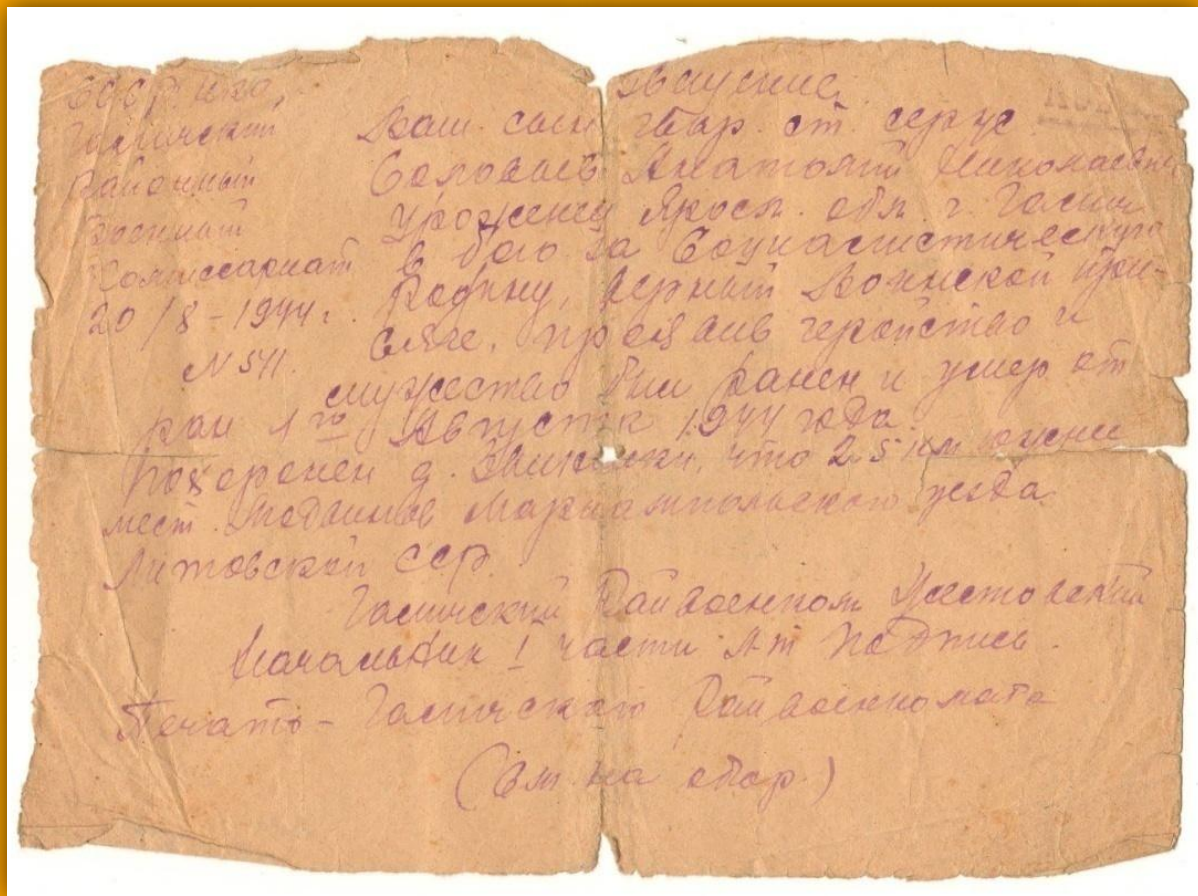 СССР НКО,
Галичский
Районный
Военный
Комиссариат
20/8-1944 г.
N 541.
Извещение.
Ваш сын гвар. ст. серж.
Соловьев Анатолий Николаевич
Уроженец Яросл. обл. г. Галич
в бою за Социалистическую
Родину, верный воинской при-
сяге, проявив геройство и
мужество был ранен и умер от
ран 1го Августа 1944 года.
Похоронен д. что 2,5 км южнее
мест. Мариампольского уезда
Литовский ССР
Галичский Райвоенком
Начальник 1 части л-т Подпись.
Печать - Галичского Райвоенкомата
(См. на обор.)